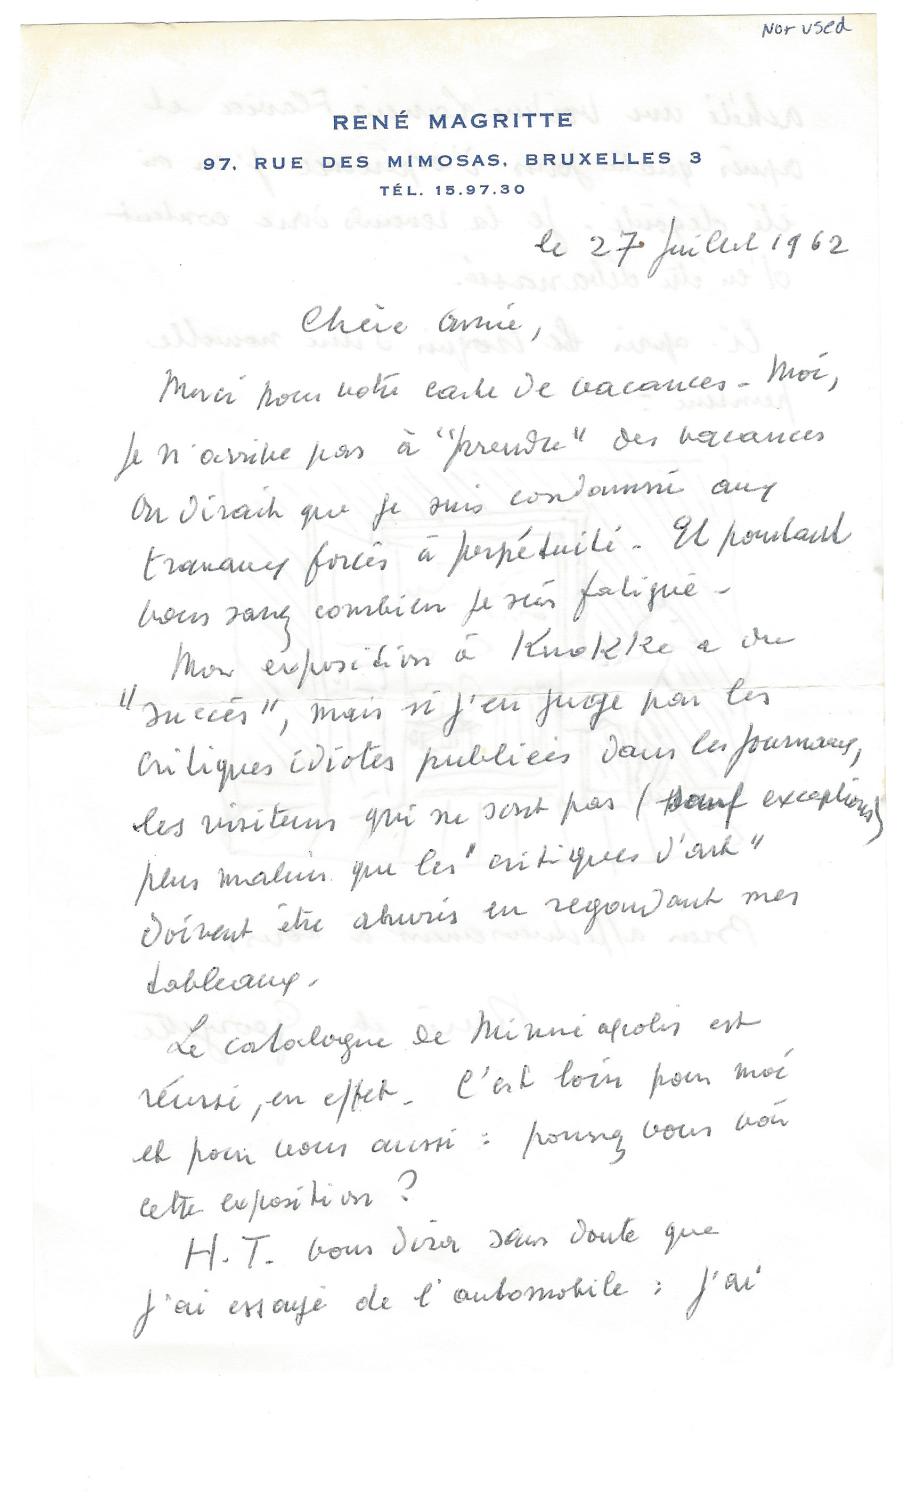 Nor used
RENÉ MAGRITTE
97, RUE DES MIMOSAS, BRUXELLES 3
TÉL. 15.97.30
le 27 juillet 1962
Chère amie,
Merci pour votre carte de vacances - Moi,
je n'arrive pas à "prendre" des vacances
On dirait que je suis condamné aux
travaux forcés à perpétuité - Et pourtant
vous savez combien je suis fatigué -
Mon exposition à Knokke a du
"succès", mais si j'en juge par les
critiques idiotes publiées dans les journaux,
les visiteurs qui ne sont pas (sauf exceptions)
plus malins que les "critiques d'art"
doivent être ahuris en regardant mes
tableaux.
Le catalogue de Minneapolis est
réussi, en effet - C'est loin pour moi
et pour vous aussi : pourrez vous voir
cette exposition ?
H.T. vous dira sans doute que
j'ai essayé de l'automobile : j'ai